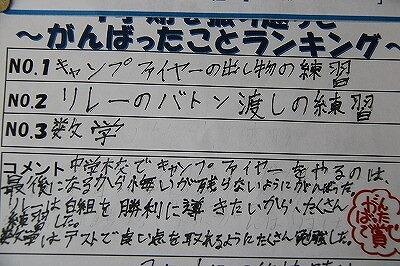 ～がんばったことランキング～
NO.1 キャンプファイヤーの出し物の練習
NO.2 リレーのバトン渡しの練習
NO.3 数学
コメント 中学校でキャンプファイヤーをやるのは、
最後になるから悔いが残らないようにがんばった。
リレーは白組を勝利に導きたいからたくさん
練習した。
数学はテストで良い点を取れるようにたくさん勉強した。
がんばったで賞